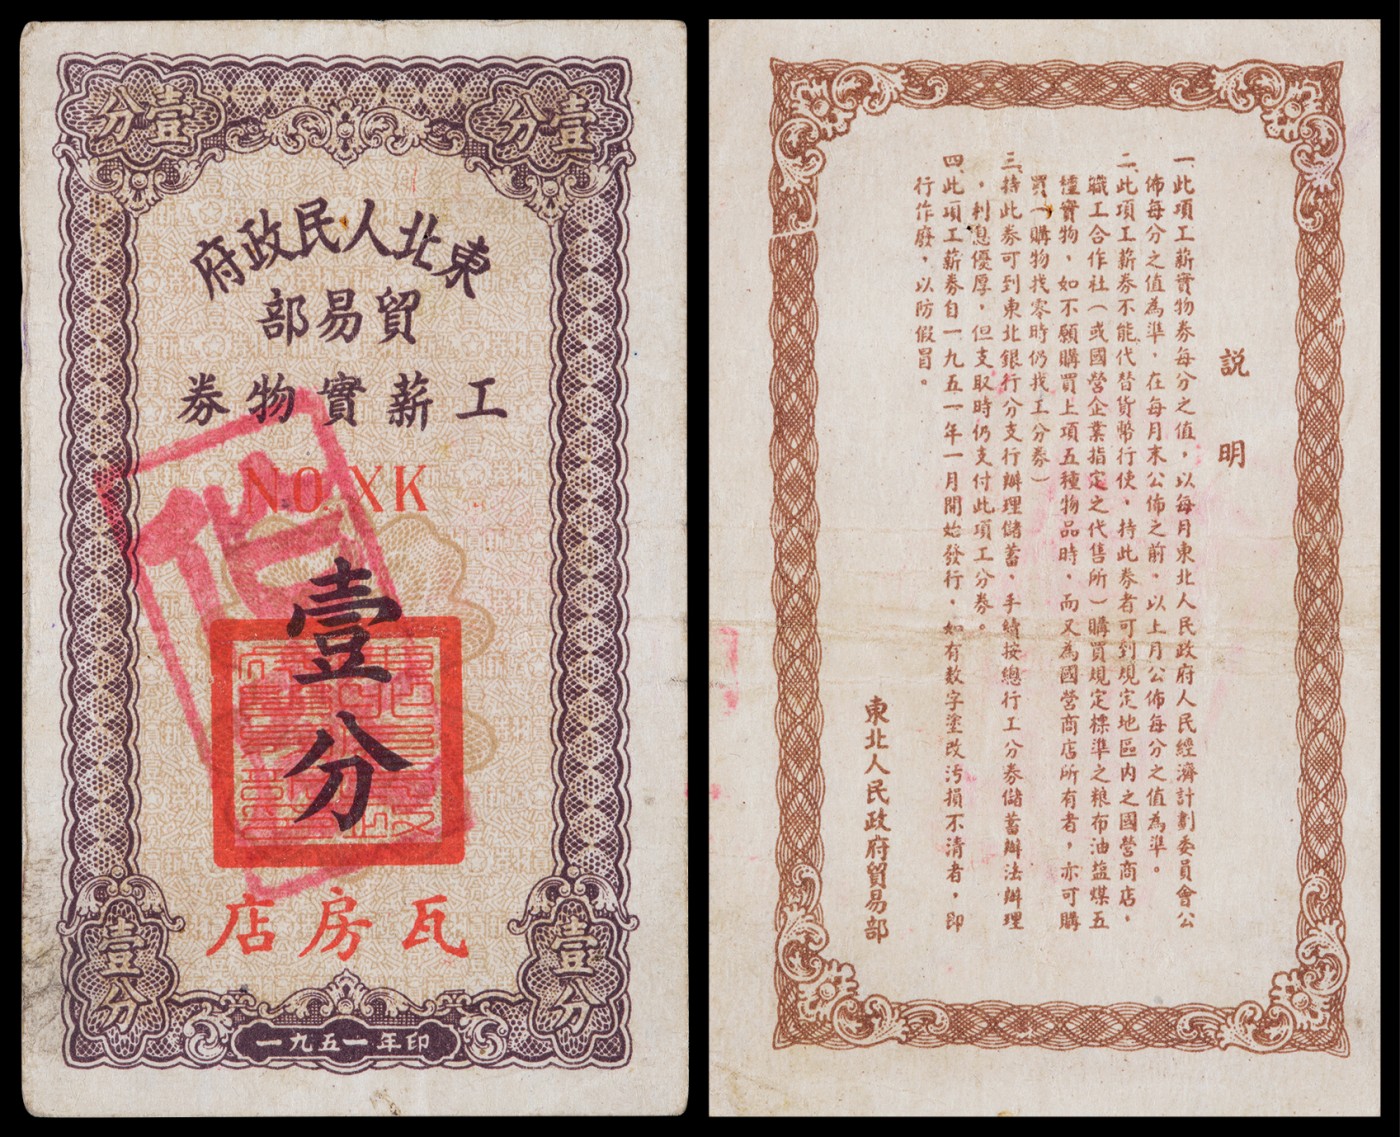 壹分
壹分
東北人民政府
貿易部
工薪實物券
NO.XK
壹分
瓦房店
壹分
壹分
一九五一年印
説明
一、此項工薪實物券每分之值，以每月東北人民政府人民經濟計劃委員會公
佈每分之值為準，在每月末公佈之前，以上月公佈每分之值為準。
二、此項工薪券不能代替貨幣行使，持此券者可到規定地區内之國營商店，
職工合作社（或國營企業指定之代售所）購買規定標準之粮布油盐煤五
種實物，如不願購買上項五種物品時，而又為國營商店所有者，亦可購
買（購物找零時仍找工分券）
三、持此券可到東北銀行分支行辦理儲蓄、手續按總行工分券儲蓄辦法辦理
，利息優厚，但支取時仍支付此項工分券。
四、此項工薪券自一九五一年一月開始發行，如有數字塗改污損不清者，即
行作廢，以防假冒。
東北人民政府貿易部